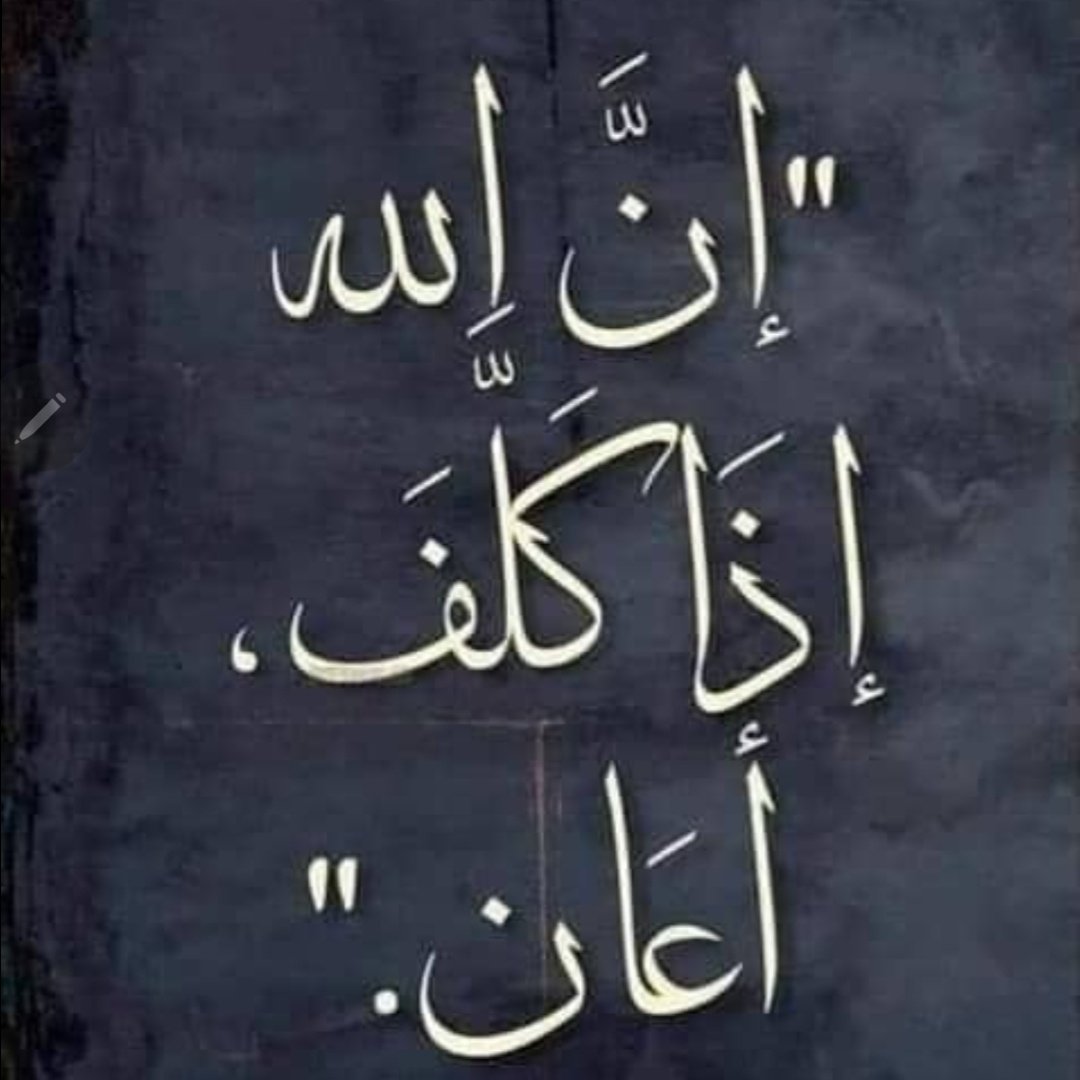 "إنَّ الله
إذَا كَلَّفَ،
أعَان."